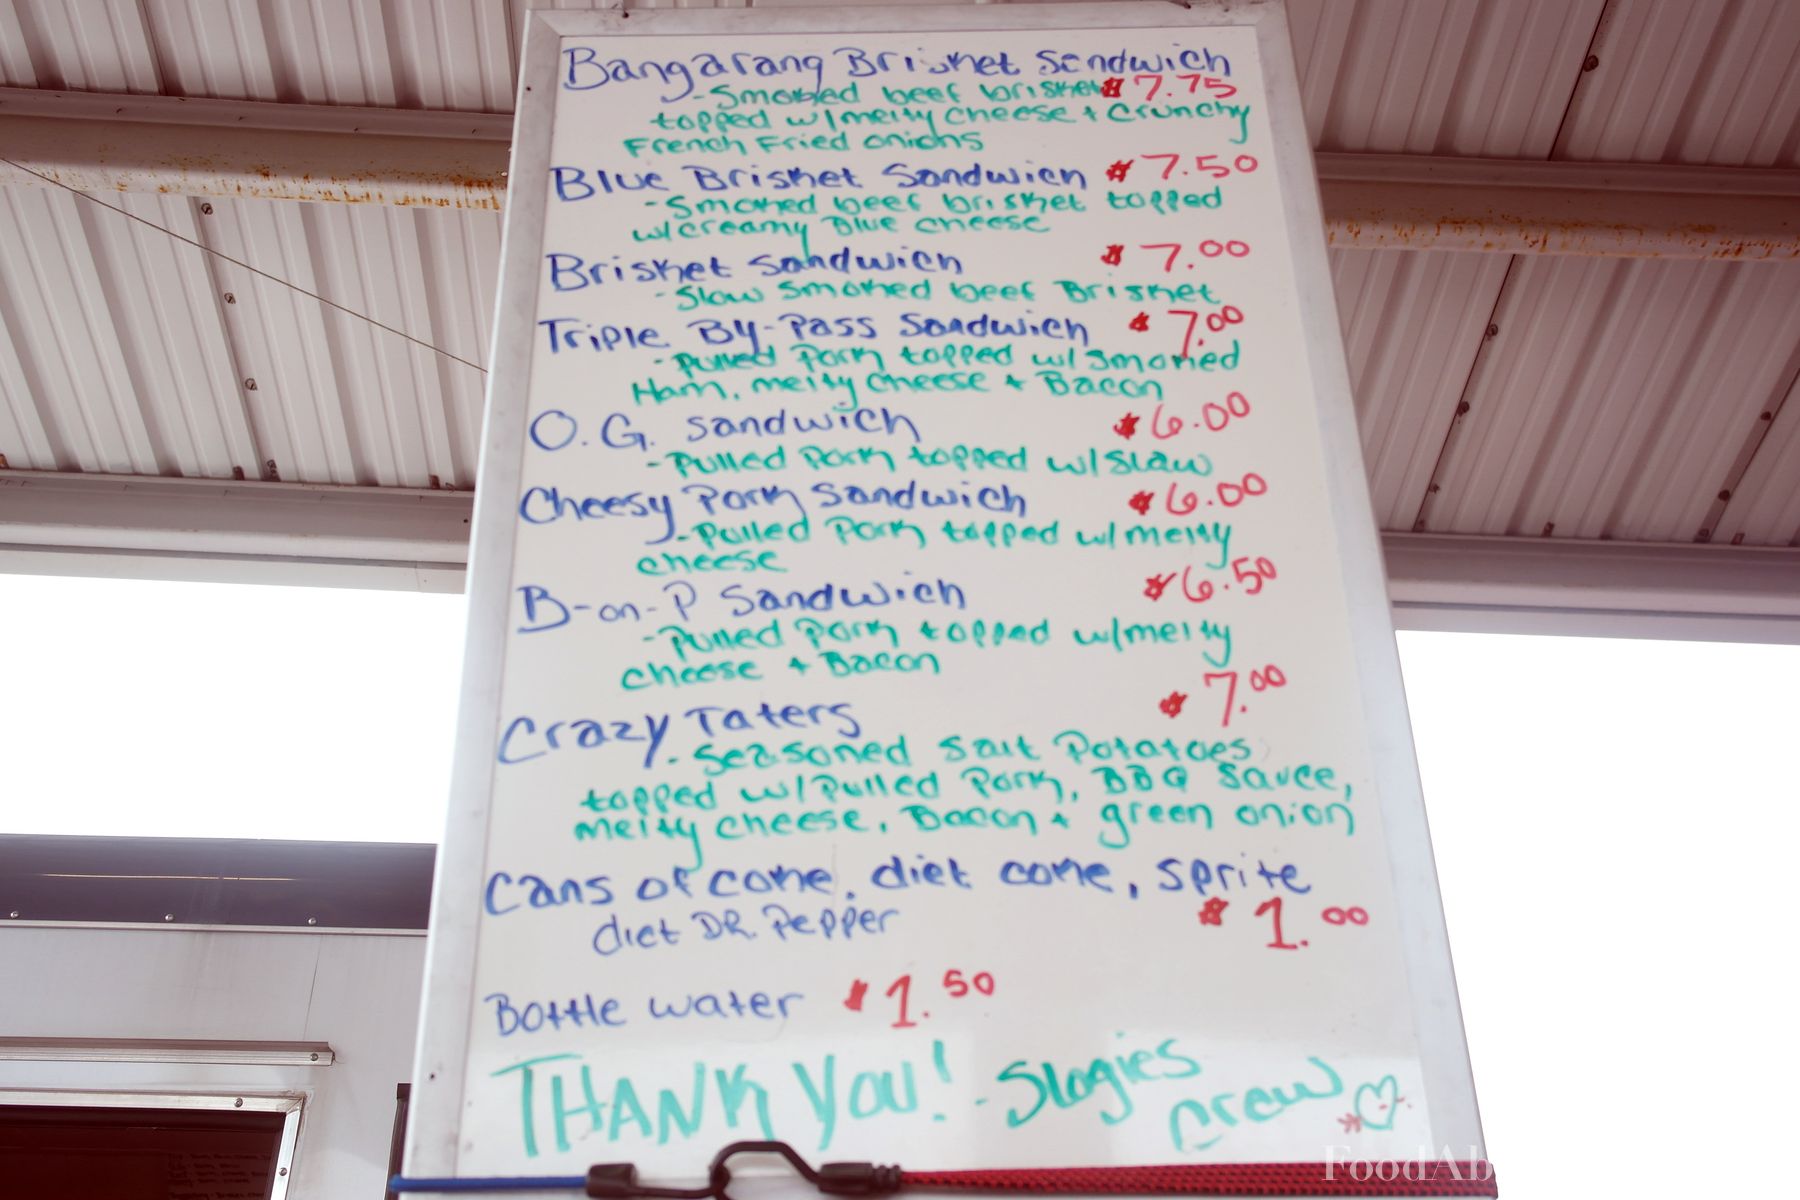 Bangarang Brisket Sandwich
-Smoked beef brisket $7.75
topped w/melty cheese + crunchy
French Fried onions
Blue Brisket Sandwich $7.50
-Smoked beef brisket topped
w/creamy Blue cheese
Brisket Sandwich $7.00
-Slow smoked beef Brisket
Triple By-Pass Sandwich $7.00
-Pulled Pork topped w/ smoked
Ham, melty cheese + Bacon
O.G. Sandwich $6.00
-Pulled Pork topped w/slaw
Cheesy Pork Sandwich $6.00
-Pulled Pork topped w/melty
cheese
B-on-P Sandwich $6.50
-Pulled Pork topped w/melty
cheese + Bacon
Crazy Taters $7.00
-Seasoned Salt Potatoes
topped w/Pulled Pork, BBQ Sauce,
melty cheese, Bacon + green onion
Cans of coke, diet coke, sprite
diet DR. Pepper $1.00
Bottle water $1.50
THANK YOU! -Slogies
crew
FoodAb